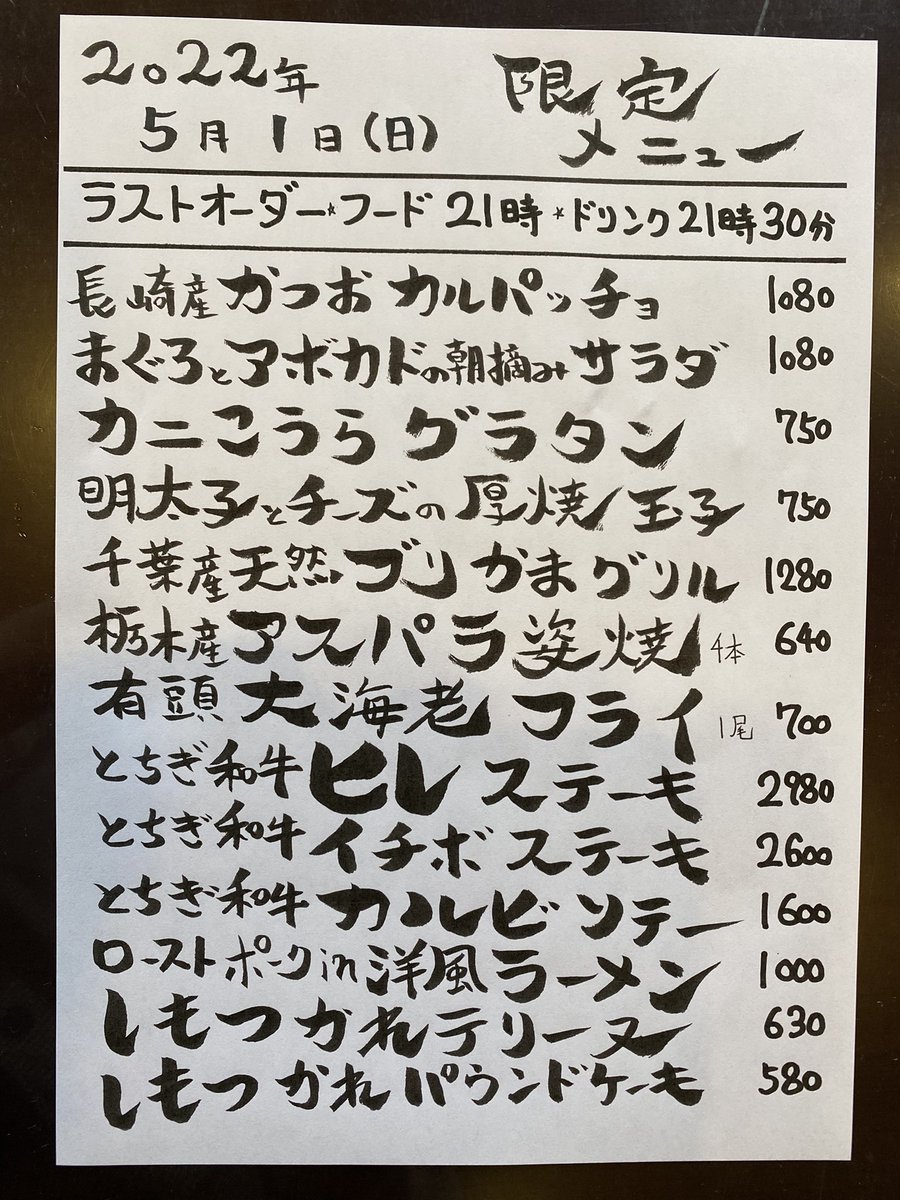 2022年
5月1日(日)
限定
メニュー
ラストオーダー*フード21時*ドリンク21時30分
長崎産かつおカルパッチョ 1080
まぐろとアボカドの朝摘みサラダ 1080
カニこうらグラタン 750
明太子とチーズの厚焼玉子 750
千葉産天然ブリかまグリル 1280
栃木産アスパラ姿焼 4本 640
有頭大海老フライ 1尾 700
とちぎ和牛ヒレステーキ 2980
とちぎ和牛イチボステーキ 2600
とちぎ和牛カルビソテー 1600
ローストポークin洋風ラーメン 1000
しもつかれテリーヌ 630
しもつかれパウンドケーキ 580